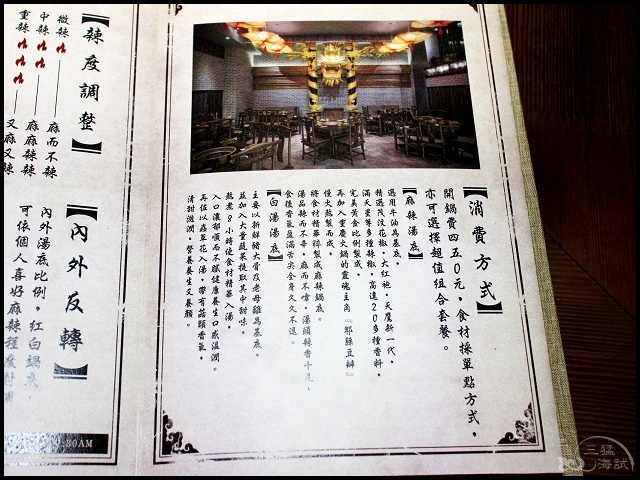 【消費方式】
開鍋費四五0元，食材採單點方式，
亦可選擇超值組合套餐。
【麻辣湯底】
選用牛油為基底，
精選茂汶花椒，大紅袍，天鷹新一代，
滿天星等多種辣椒，高達20多種香料，
完美黃金比例製成。
再加入重慶火鍋的靈魂主角『郫縣豆瓣』
慢火熬製而成，
將食材精華粹製成麻辣鍋底。
湯品辣而不辛，麻而不嗆，湯頭辣香十足，
食後香氣盈滿舌尖全身久久不退。
【白湯湯底】
主要以新鮮豬大骨及老母雞為基底。
並加入大量蔬果提取其中甜味。
熬煮8小時使食材精華入湯，
入口濃郁順而不膩健康養生口感溫潤。
再佐以蟲草花入湯，帶有菇類香氣，
清甜滋潤，營養養生又養顏。
辣度調整】
微辣 麻而不辣
中辣 麻麻辣辣
重辣 又麻又辣
【內外反轉】
內外湯底比例。紅白鍋底
可依個人喜好麻辣程度
:30AM
三猛
海試